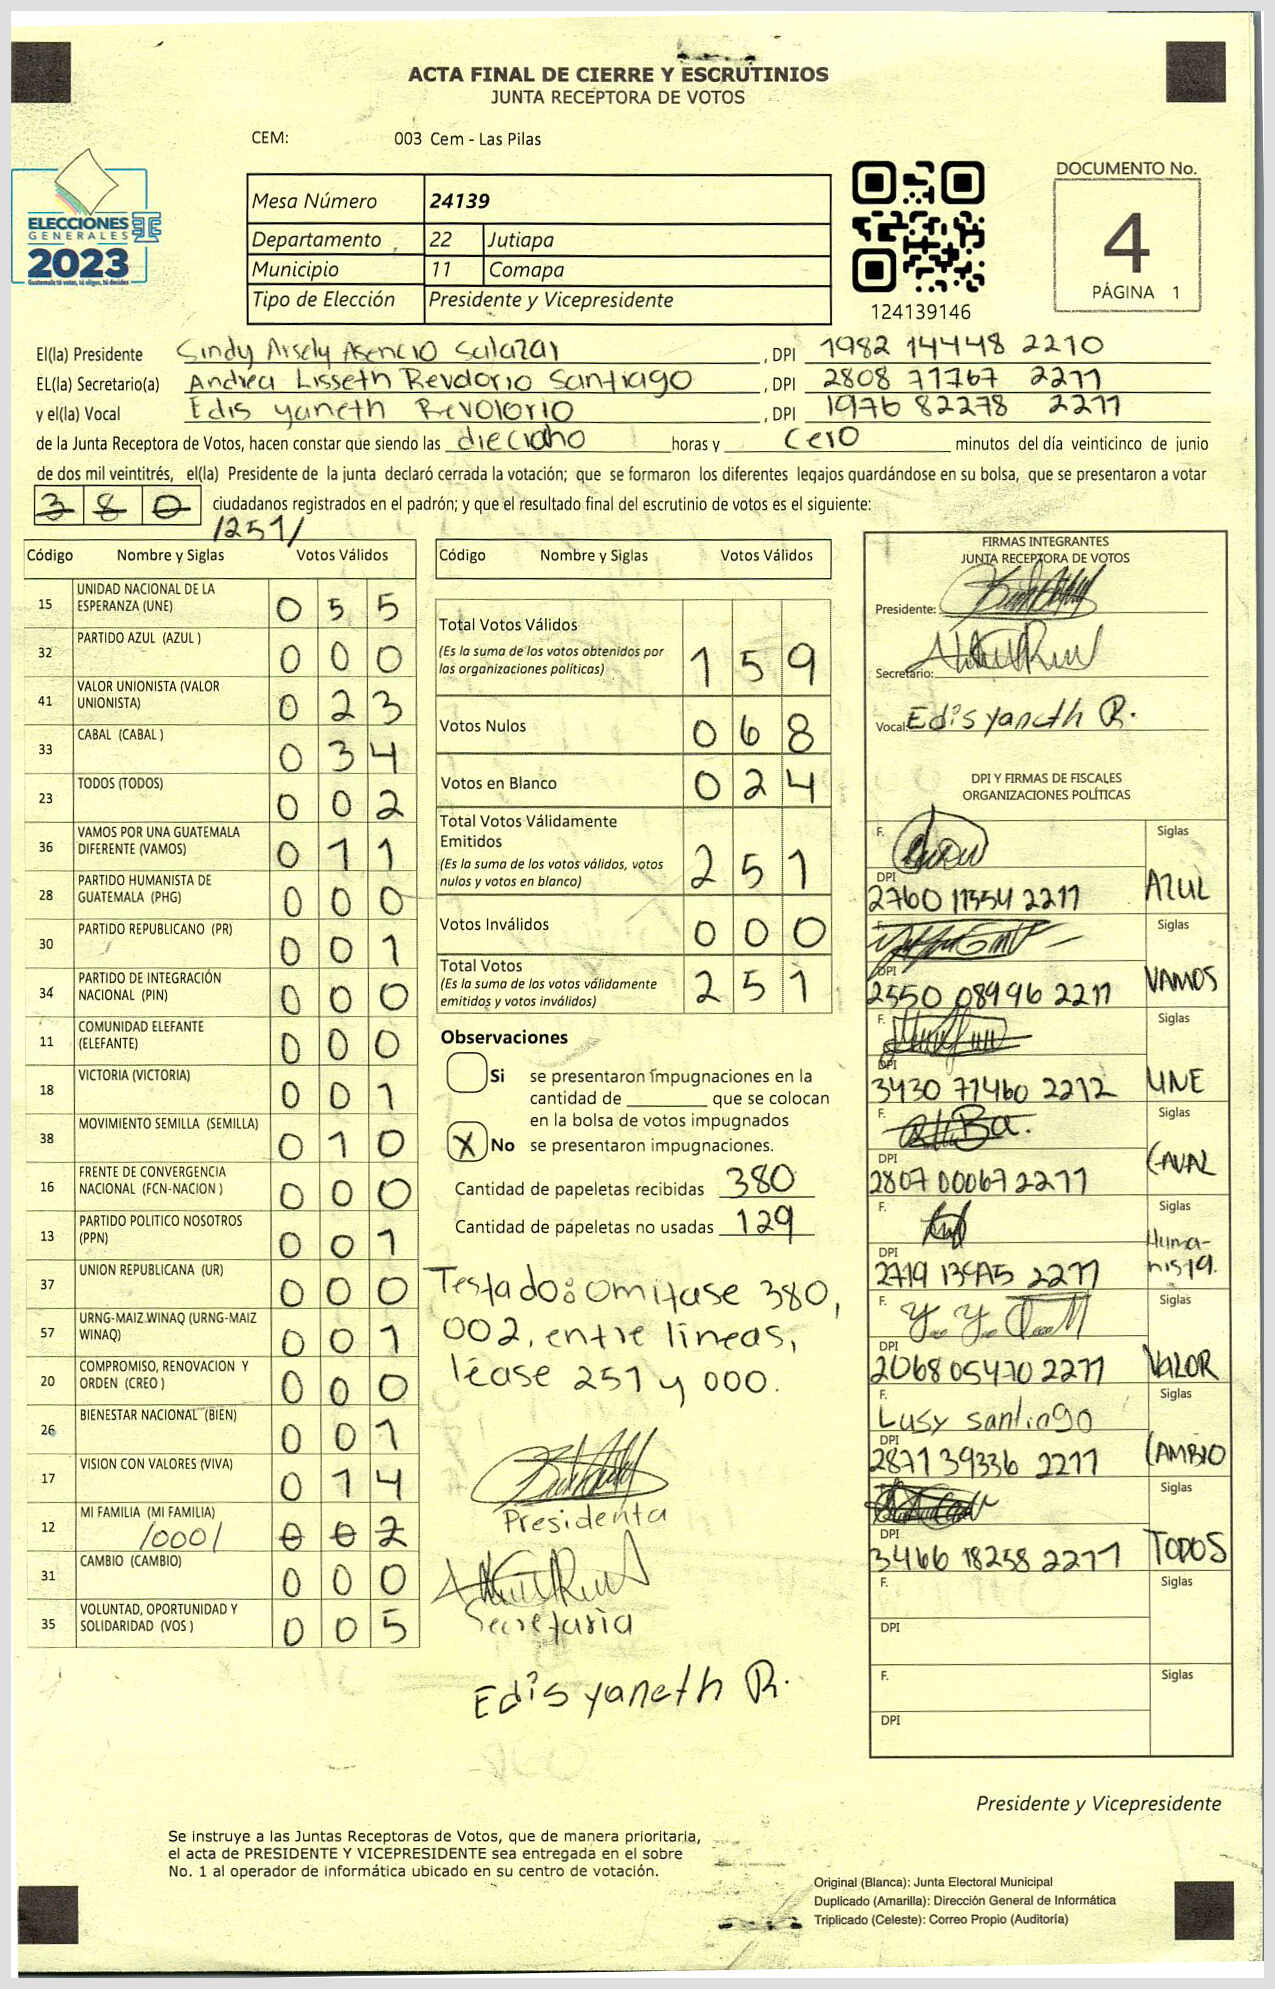 ACTA FINAL DE CIERRE Y ESCRUTINIOS
JUNTA RECEPTORA DE VOTOS
CEM: 003 Cem - Las Pilas
ELECCIONES
GENERALES
2023
Guatemala tú votas, tú eliges, tú decides
Mesa Número 24139
Departamento 22 Jutiapa
Municipio 11 Comapa
Tipo de Elección Presidente y Vicepresidente
124139146
DOCUMENTO No.
4
PÁGINA 1
El(la) Presidente Sindy Arsely Asencio Salazar, DPI 1982 14448 2210
EL(la) Secretario(a) Andrea Lisseth Revolorio Santiago, DPI 2808 71767 2211
y el(la) Vocal Edis yaneth Revolorio, DPI 1976 82278 2211
de la Junta Receptora de Votos, hacen constar que siendo las dieciocho horas y cero minutos del día veinticinco de junio
de dos mil veintitrés, el(la) Presidente de la junta declaró cerrada la votación; que se formaron los diferentes legajos guardándose en su bolsa, que se presentaron a votar
380 ciudadanos registrados en el padrón; y que el resultado final del escrutinio de votos es el siguiente:
/251/
Código Nombre y Siglas Votos Válidos
15 UNIDAD NACIONAL DE LA ESPERANZA (UNE) 0 5 5
32 PARTIDO AZUL (AZUL ) 0 0 0
41 VALOR UNIONISTA (VALOR UNIONISTA) 0 2 3
33 CABAL (CABAL ) 0 3 4
23 TODOS (TODOS) 0 0 2
36 VAMOS POR UNA GUATEMALA DIFERENTE (VAMOS) 0 1 1
28 PARTIDO HUMANISTA DE GUATEMALA (PHG) 0 0 0
30 PARTIDO REPUBLICANO (PR) 0 0 1
34 PARTIDO DE INTEGRACIÓN NACIONAL (PIN) 0 0 0
11 COMUNIDAD ELEFANTE (ELEFANTE) 0 0 0
18 VICTORIA (VICTORIA) 0 0 1
38 MOVIMIENTO SEMILLA (SEMILLA) 0 1 0
16 FRENTE DE CONVERGENCIA NACIONAL (FCN-NACION ) 0 0 0
13 PARTIDO POLITICO NOSOTROS (PPN) 0 0 1
37 UNION REPUBLICANA (UR) 0 0 0
57 URNG-MAIZ WINAQ (URNG-MAIZ WINAQ) 0 0 1
20 COMPROMISO, RENOVACION Y ORDEN (CREO ) 0 0 0
26 BIENESTAR NACIONAL (BIEN) 0 0 1
17 VISION CON VALORES (VIVA) 0 1 4
12 MI FAMILIA (MI FAMILIA) /000/ 0 0 2
31 CAMBIO (CAMBIO) 0 0 0
35 VOLUNTAD, OPORTUNIDAD Y SOLIDARIDAD (VOS ) 0 0 5
Código Nombre y Siglas Votos Válidos
Total Votos Válidos
(Es la suma de los votos obtenidos por las organizaciones políticas) 1 5 9
Votos Nulos 0 6 8
Votos en Blanco 0 2 4
Total Votos Válidamente Emitidos
(Es la suma de los votos válidos, votos nulos y votos en blanco) 2 5 1
Votos Inválidos 0 0 0
Total Votos
(Es la suma de los votos válidamente emitidos y votos inválidos) 2 5 1
Observaciones
Si se presentaron impugnaciones en la
cantidad de ________ que se colocan
en la bolsa de votos impugnados
X No se presentaron impugnaciones.
Cantidad de papeletas recibidas 380
Cantidad de papeletas no usadas 129
Testado: omitase 380,
002, entre lineas,
léase 251 y 000.
Presidenta
Secretaria
Edis yaneth R.
FIRMAS INTEGRANTES
JUNTA RECEPTORA DE VOTOS
Presidente:
Secretario:
Vocal: Edis yaneth R.
DPI Y FIRMAS DE FISCALES
ORGANIZACIONES POLÍTICAS
F. Siglas
DPI 2760 11354 2211 AZUL
F. Siglas
DPI 2550 08996 2211 VAMOS
F. Siglas
DPI 3430 71460 2212 UNE
F. Siglas
DPI 2807 00067 2211 CAVAL
F. Siglas
DPI 2719 2211 Huma-
nista.
F. Siglas
DPI 2068 05470 2211 VALOR
F. Lusy santiago Siglas
DPI 2871 39336 2211 CAMBIO
F. Siglas
DPI 3466 18258 2211 TODOS
F. Siglas
DPI
F. Siglas
DPI
Presidente y Vicepresidente
Se instruye a las Juntas Receptoras de Votos, que de manera prioritaria,
el acta de PRESIDENTE Y VICEPRESIDENTE sea entregada en el sobre
No. 1 al operador de informática ubicado en su centro de votación.
Original (Blanca): Junta Electoral Municipal
Duplicado (Amarilla): Dirección General de Informática
Triplicado (Celeste): Correo Propio (Auditoría)